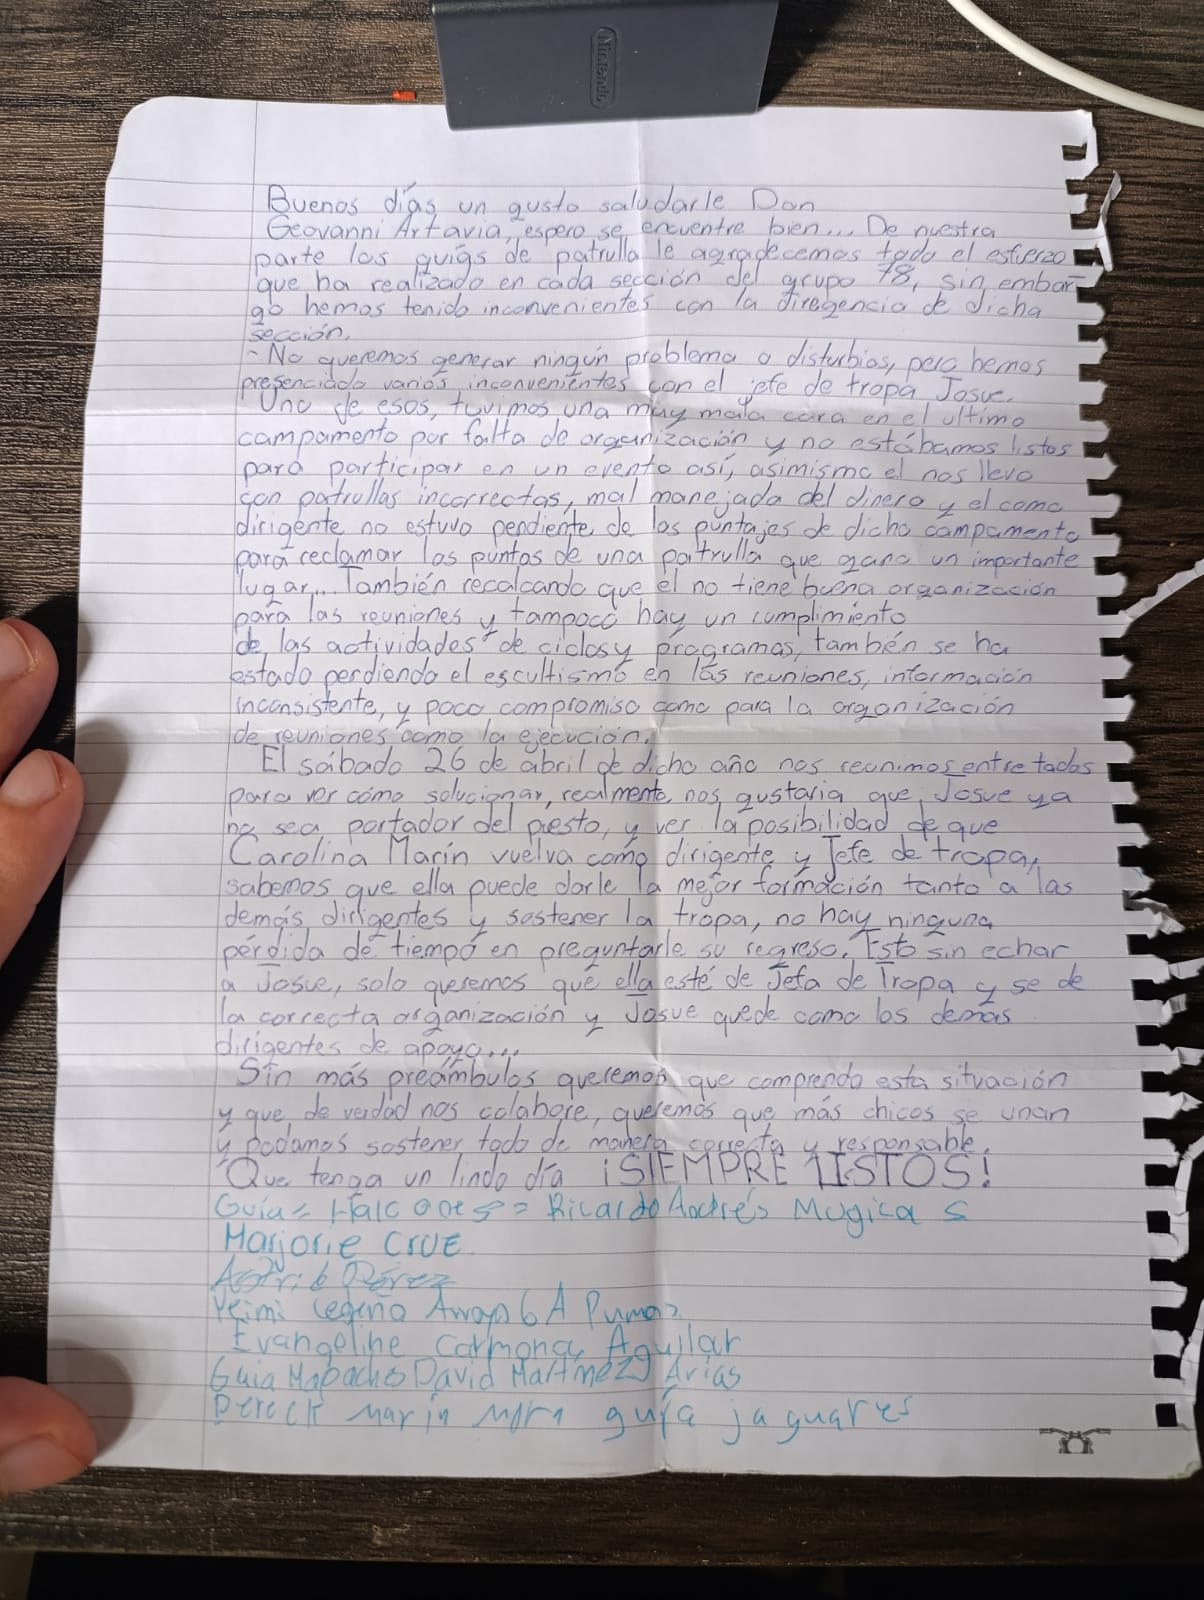 Nintendo
Buenos días un gusto saludarle Don
Geovanni Artavia, espero se encuentre bien... De nuestra
parte los guías de patrulla le agradecemos todo el esfuerzo
que ha realizado en cada sección del grupo 78, sin embar-
go hemos tenido inconvenientes con la diregencia de dicha
sección.
- No queremos generar ningún problema o disturbios, pero hemos
presenciado varios inconvenientes con el jefe de tropa Josue.
Uno de esos, tuvimos una muy mala cara en el ultimo
campamento por falta de organización y no estábamos listos
para participar en un evento así, asimismo el nos llevo
con patrullas incorrectas, mal manejada del dinero y el como
dirigente no estuvo pendiente de los puntajes de dicho campamento
para reclamar los puntos de una patrulla que gano un importante
lugar... También recalcando que el no tiene buena organización
para las reuniones y tampoco hay un cumplimiento
de las actividades de ciclos y programas, tambén se ha
estado perdiendo el escultismo en las reuniones, información
inconsistente, y poco compromiso como para la organización
de reuniones como la ejecución.
El sábado 26 de abril de dicho año nos reunimos entre todos
para ver cómo solucionar, realmente nos gustaria que Josue ya
no sea portador del puesto, y ver la posibilidad de que
Carolina Marín vuelva como dirigente y Jefe de tropa,
sabemos que ella puede darle la mejor formación tanto a las
demás dirigentes y sostener la tropa, no hay ninguna
pérdida de tiempo en preguntarle su regreso. Esto sin echar
a Josue, solo queremos que ella esté de Jefa de Tropa y se de
la correcta organización y Josue quede como los demás
dirigentes de apoyo...
Sin más preámbulos queremos que comprenda esta situación
y que de verdad nos colabore, queremos que más chicos se unan
y podamos sostener todo de manera correcta y responsable.
Que tenga un lindo día ¡SIEMPRE LISTOS!
Guía Halcones = Ricardo Andrés Mugica S
Marjorie Crue
Pérez
Yeimi Cedeño A Pumas
Evangeline Carmona Aguilar
Guia Mapaches David Martínez Arias
Dereck Marin Mora guía jaguares